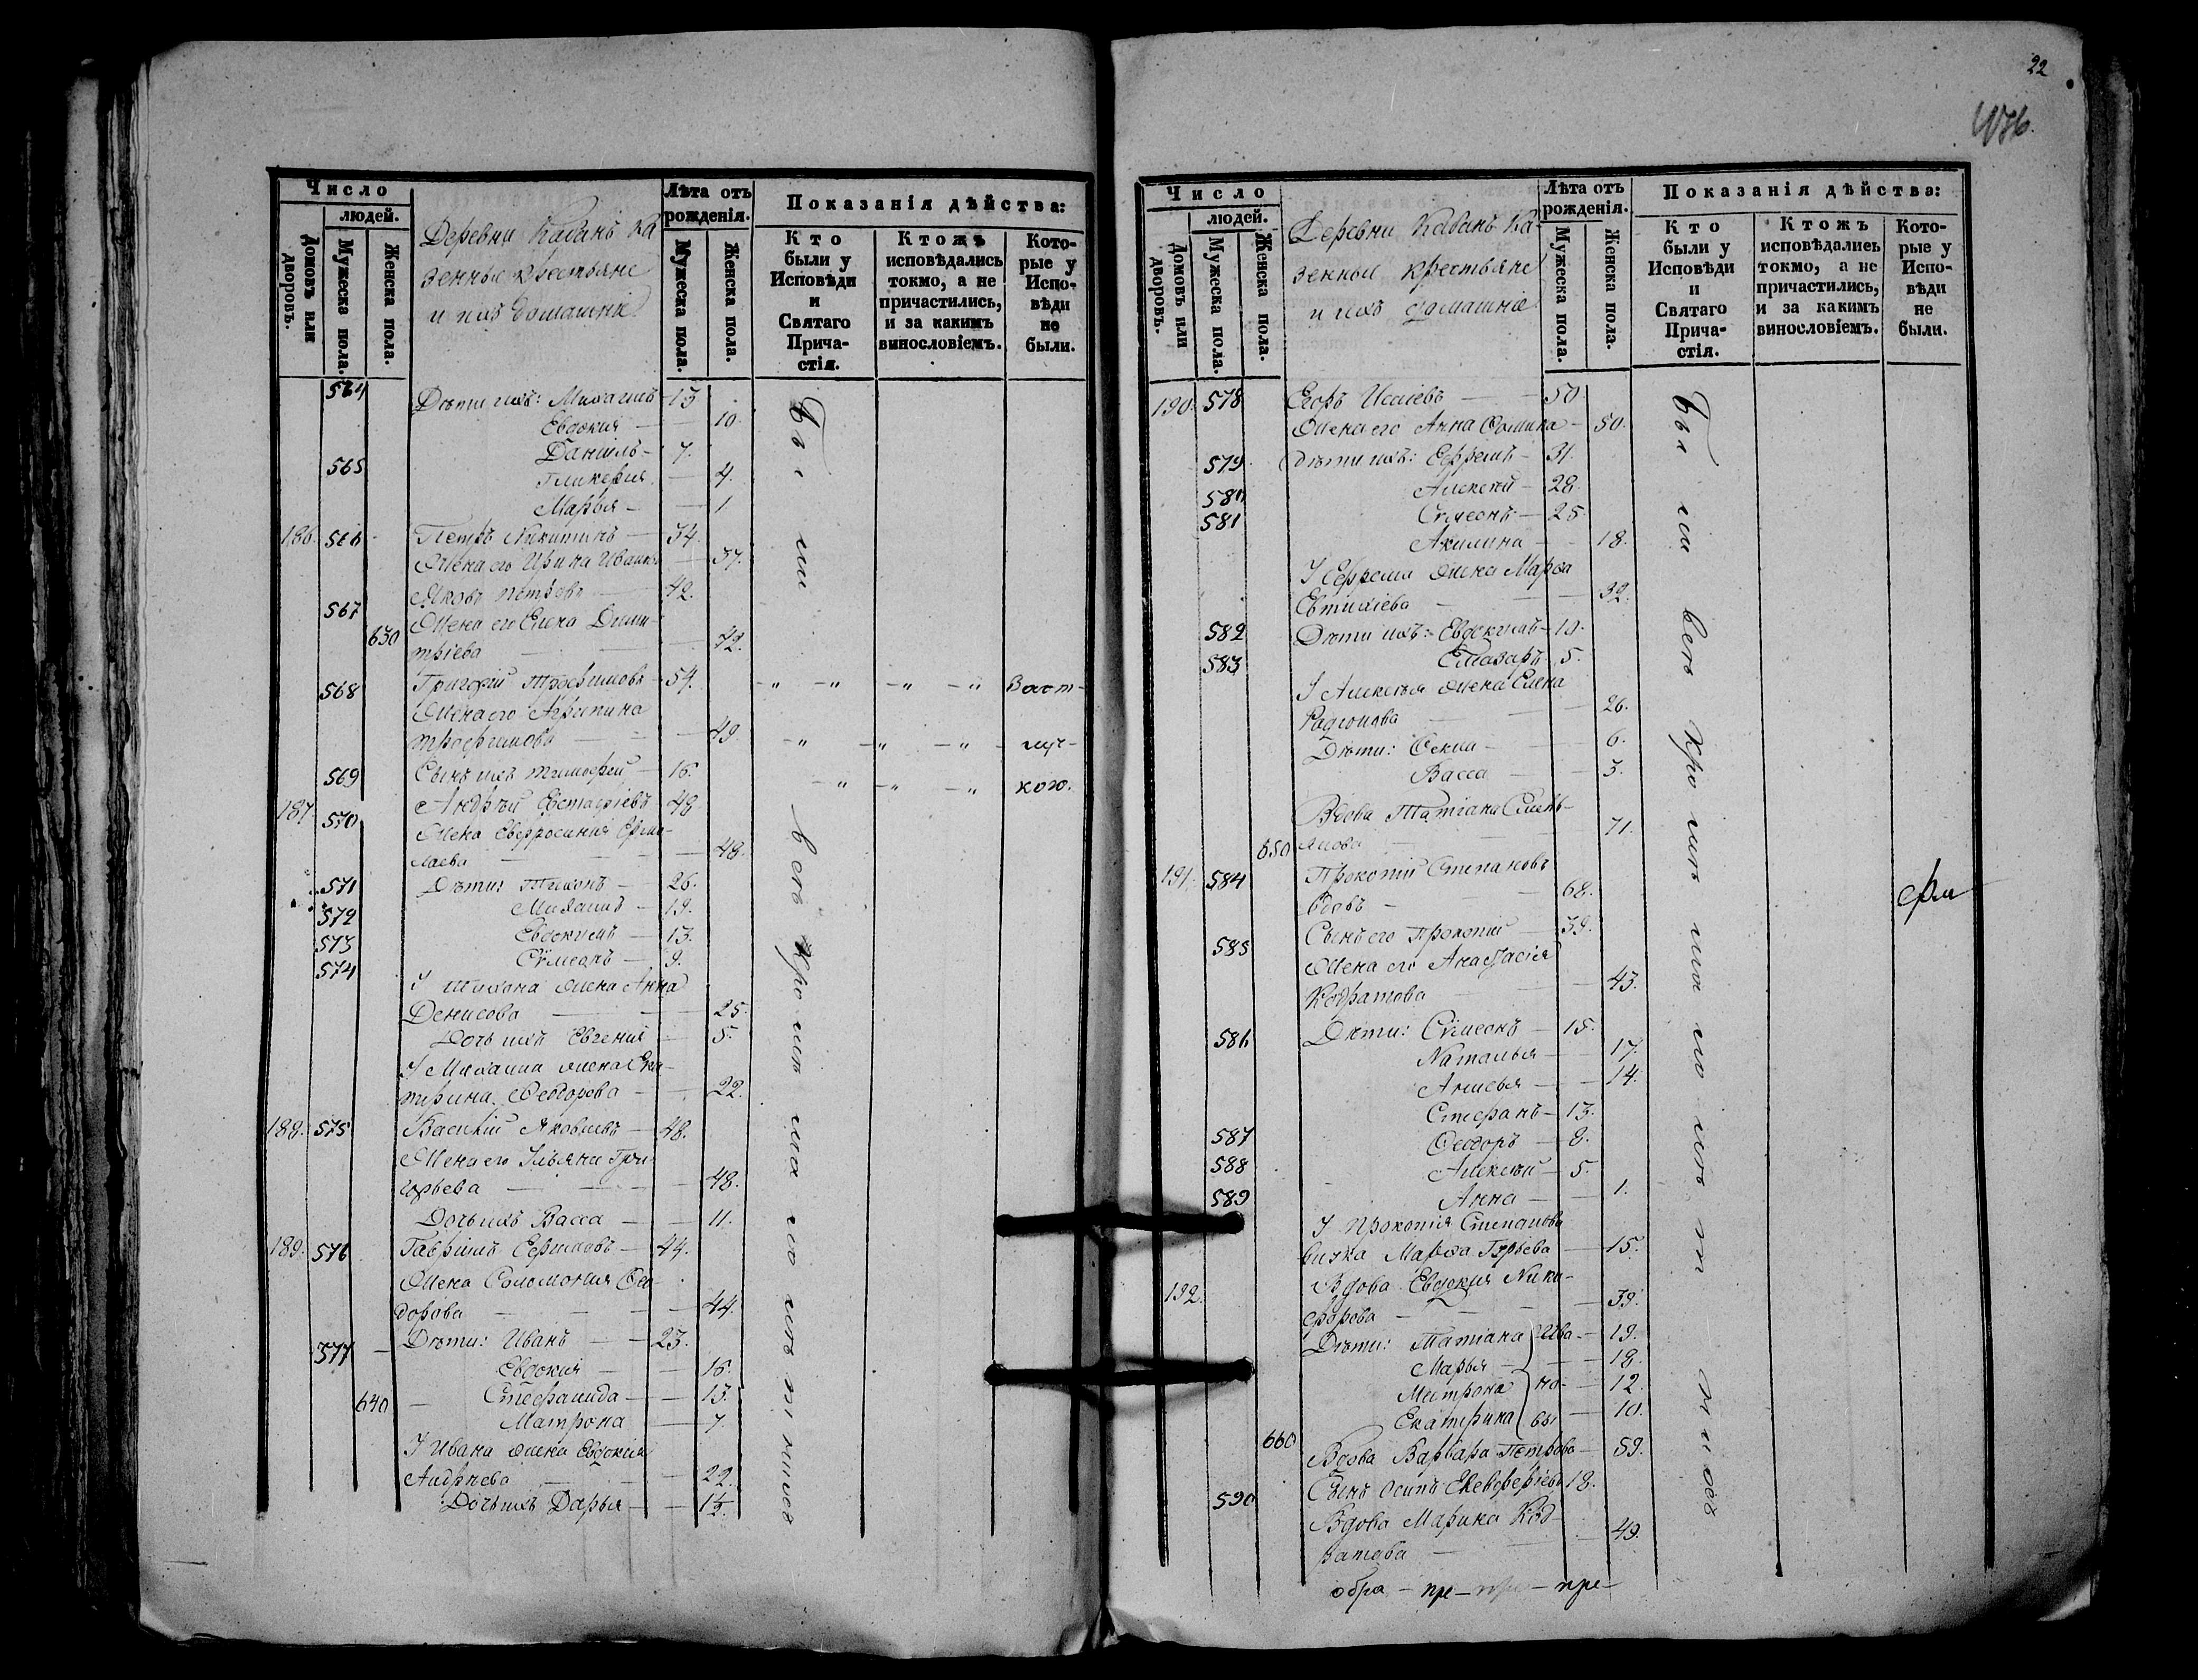 Число
людей.
Домовъ или дворовъ.
Мужеска пола.
Женска пола.
Деревни Кабанъ Ка
зенныи крестьяне
и ихъ домашніе
Лѣта отъ рожденія.
Мужеска пола.
Женска пола.
Показанія дѣйства:
Кто были у Исповѣди и Святаго Прича- стія.
Ктожъ исповѣдались токмо, а не причастились, и за какимъ винословіемъ.
Кото- рые у Испо- вѣди не были.
564 Дѣти ихъ: Михаилъ 13
Евдокия 10.
565 Даніилъ 7.
Гликерия 4.
Марья 1
186. 566 Петръ Никитинъ 34.
Жена ег Ирина Иванов 37.
567 Яковъ Петровъ 42.
630 Жена его Елена Дими-
тріева 42.
568 Григорій Трофимовъ 54.
Жена его Агрипина
Трофимова 49
569 Сынъ ихъ Тимофей 16.
187. 570 Андрѣй Евстафіевъ 48
Жена Евфросиния Ерми-
лаева 48.
571 Дѣти: Тихонъ 26.
572 Михаилъ 19.
573 Евдокимъ 13.
574 Сѵмеонъ 9.
У Тихона жена Анна
Денисова 25.
Дочь ихъ Евгения 5.
У Михаила жена Ека-
терина Ѳеодорова 22.
188. 575 Василій Яковлевъ 48.
Жена его Ульяна Гри-
горьева 48.
Дочь ихъ Васса 11.
189. 576 Гавріилъ Ефимовъ 44.
Жена Соломония Ѳео-
дорова 44.
577 Дѣти: Иванъ 23.
Евдокия 16.
640 Стефанида 13.
Матрона 7.
У Ивана жена Евдокия
Андреева 22.
Дочь ихъ Дарья
Были
22
Число
людей.
Домовъ или дворовъ.
Мужеска пола.
Женска пола.
Деревни Кабанъ Ка-
зенныи крестьяне
и ихъ домашніе
Лѣта отъ рожденія.
Мужеска пола.
Женска пола.
Показанія дѣйства:
Кто были у Исповѣди и Святаго Прича- стія.
Ктожъ исповѣдались токмо, а не причастились, и за какимъ винословіемъ.
Кото- рые у Испо- вѣди не были.
190. 578 Егоръ Исаіевъ 50.
Жена его Анна Ѳомина 50.
579 Дѣти ихъ: Ефремъ 31.
580 Алексѣй 28.
581 Сѵмеонъ 25.
Акилина 18.
У Ефрема жена Марѳа
Евтихіева 32.
582 Дѣти ихъ: Евдокимъ 10.
583 5.
У Алексѣя жена Елена
Радионова 26.
Дѣти: Ѳекла 6.
Васса 3.
Вдова Татіана Емель-
650 янова 71.
191. 584 Прокопій Степановъ
вдовъ 68.
585 Сынъ его Прокопій 39.
Жена его Анастасія
Кодратова 43.
586 Дѣти: Сѵмеонъ 15.
Наталья 17.
Анисья 14.
587 Стефанъ 13.
588 Ѳеодоръ 8.
589 Алексѣй 5.
Анна 1.
У Прокопія Степанова
внучка Марѳа Гурьева 15.
192. Вдова Евдокия Ники-
форова 39.
Дѣти: Татіана Ива- 19.
Марья 18.
Матрона но- 12.
Екатерина вы 10.
660 Вдова Варвара Петрова 59.
590 Сынъ Осипъ Елевферіевъ 18.
Вдова Марина Код-
ратова 49.
Были